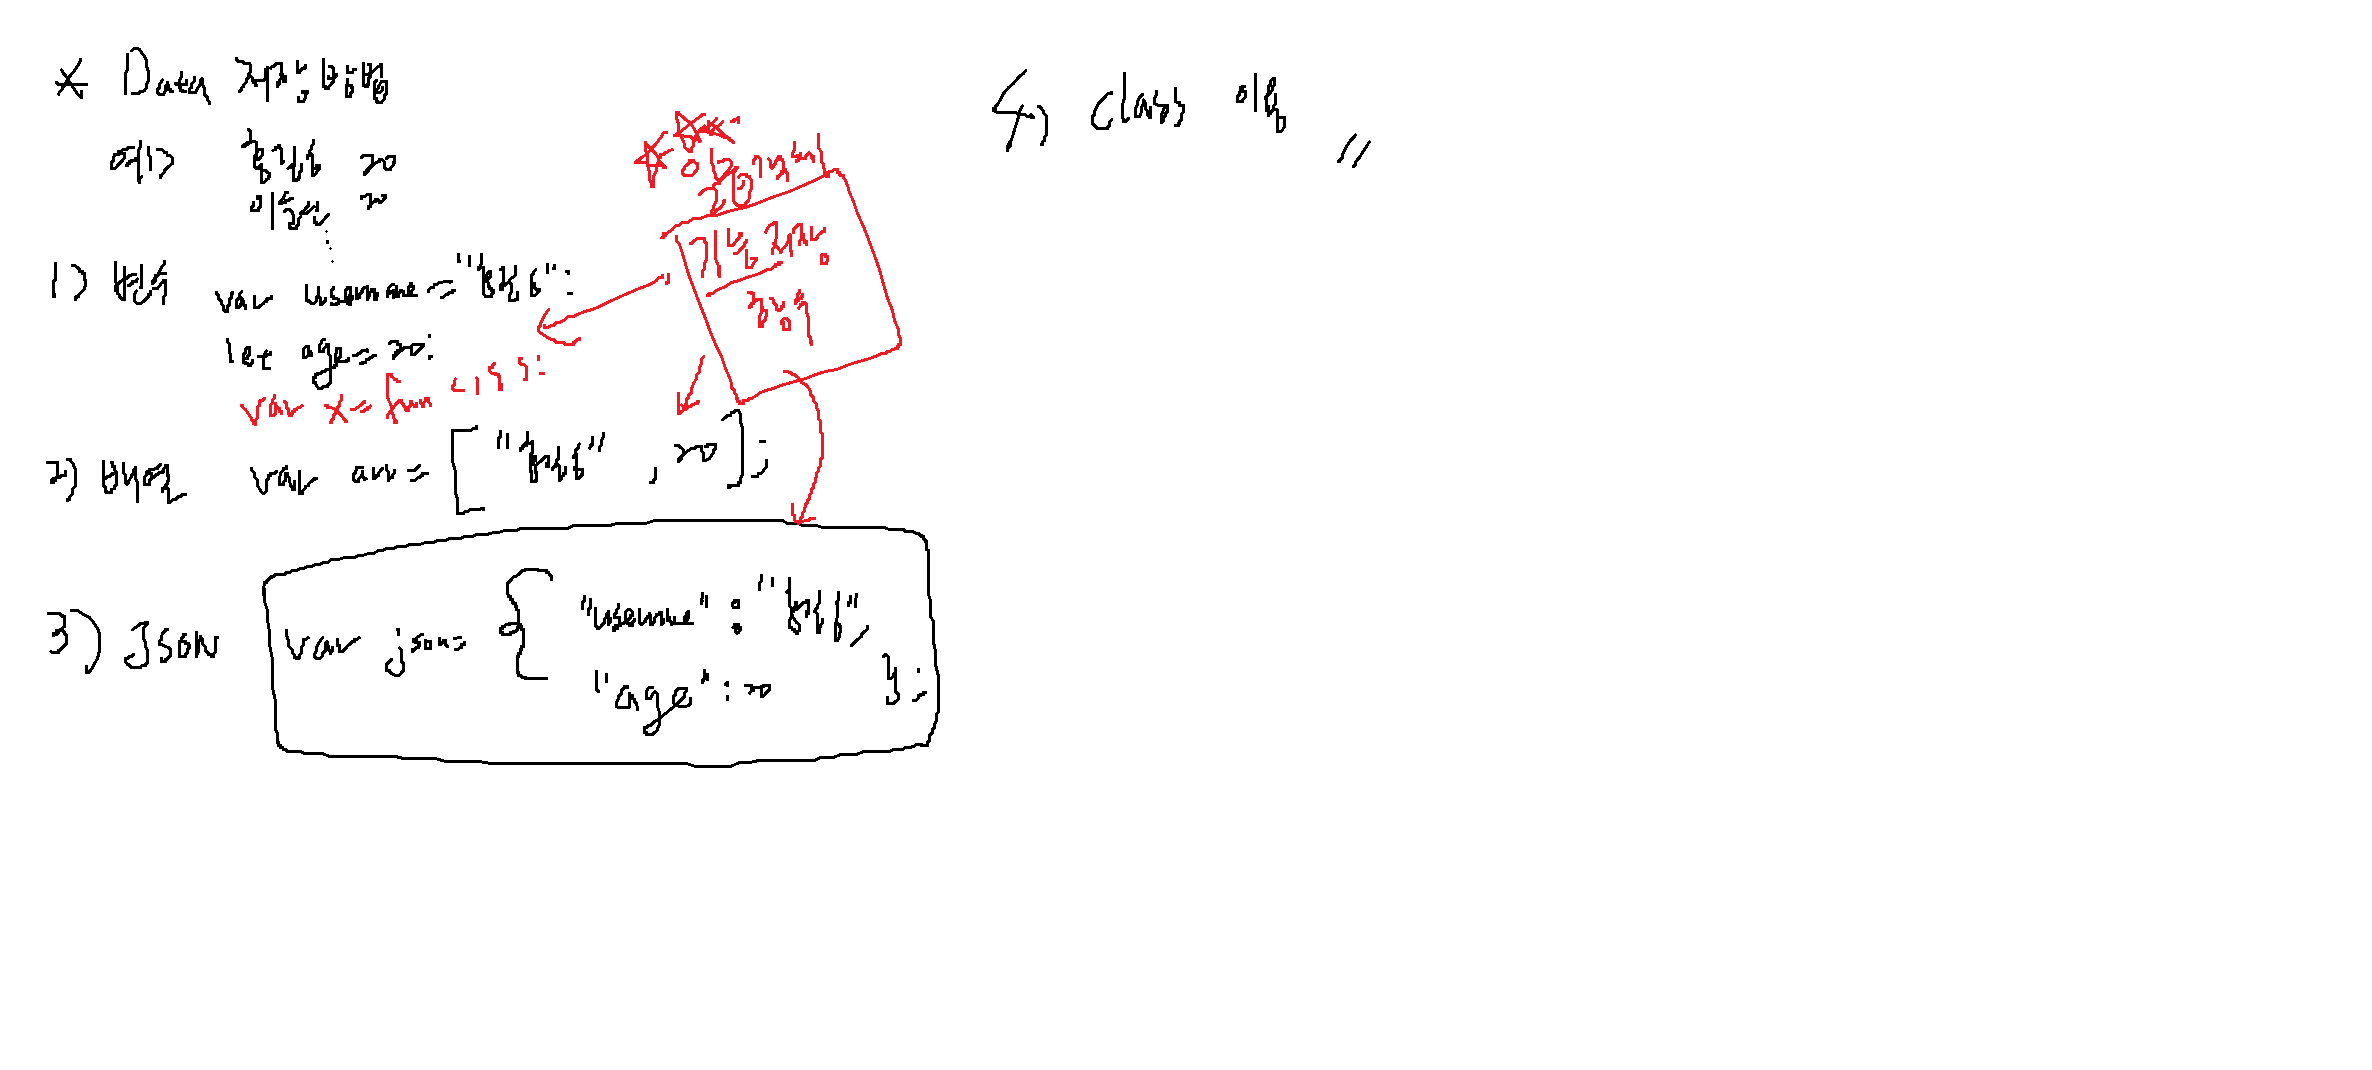 * Data 저장방법
예1) 홍길동 20
이순신 20
1) 변수 var username = "홍길동";
let age = 20;
var x = fun
2) 배열 var arr = [ "홍길동" , 20 ];
3) JSON var json = { "username" : "홍길동",
"age" : 20 };
기능 저장
20
4) class 이용